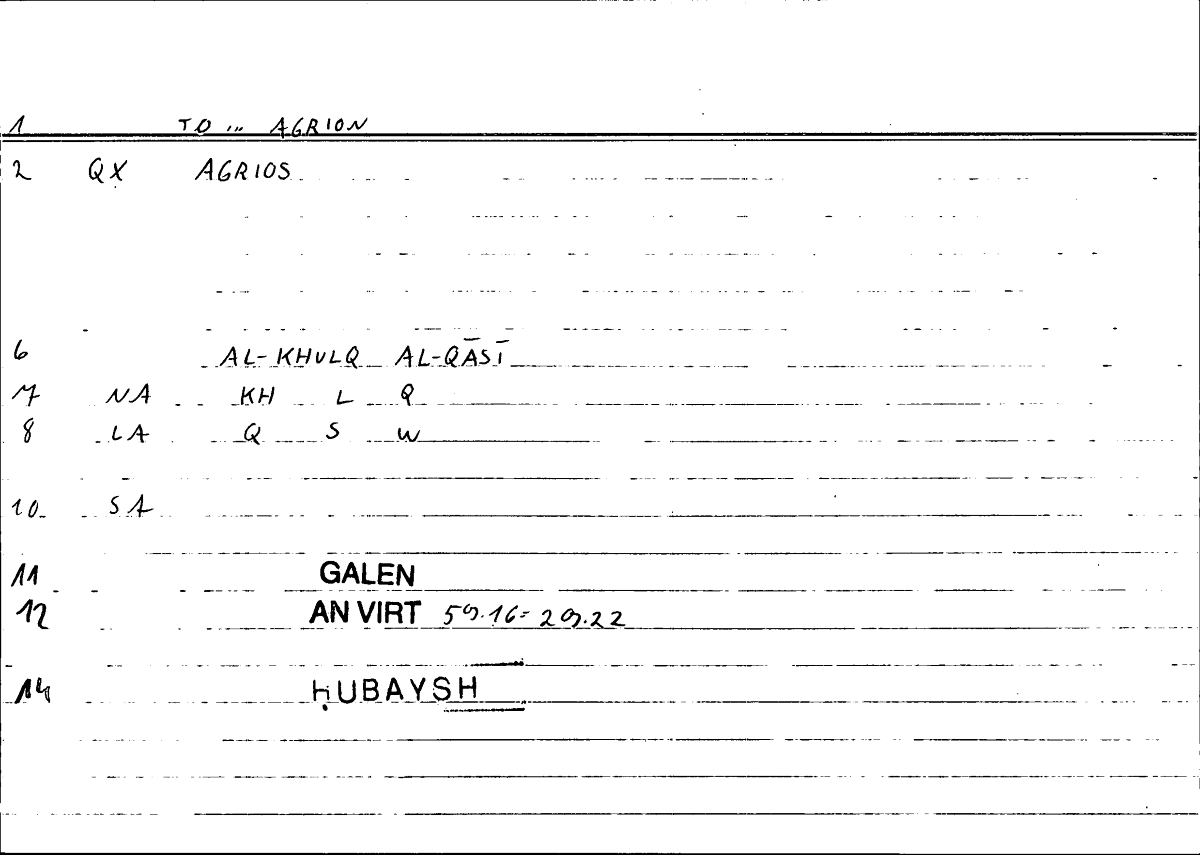 1 TO ... AGRION
2 QX AGRIOS
6 AL-KHULQ AL-QĀSĪ
7 NA KH L Q
8 LA Q S W
10 SA
11 GALEN
12 AN VIRT 59.16=29.22
14 ḤUBAYSH